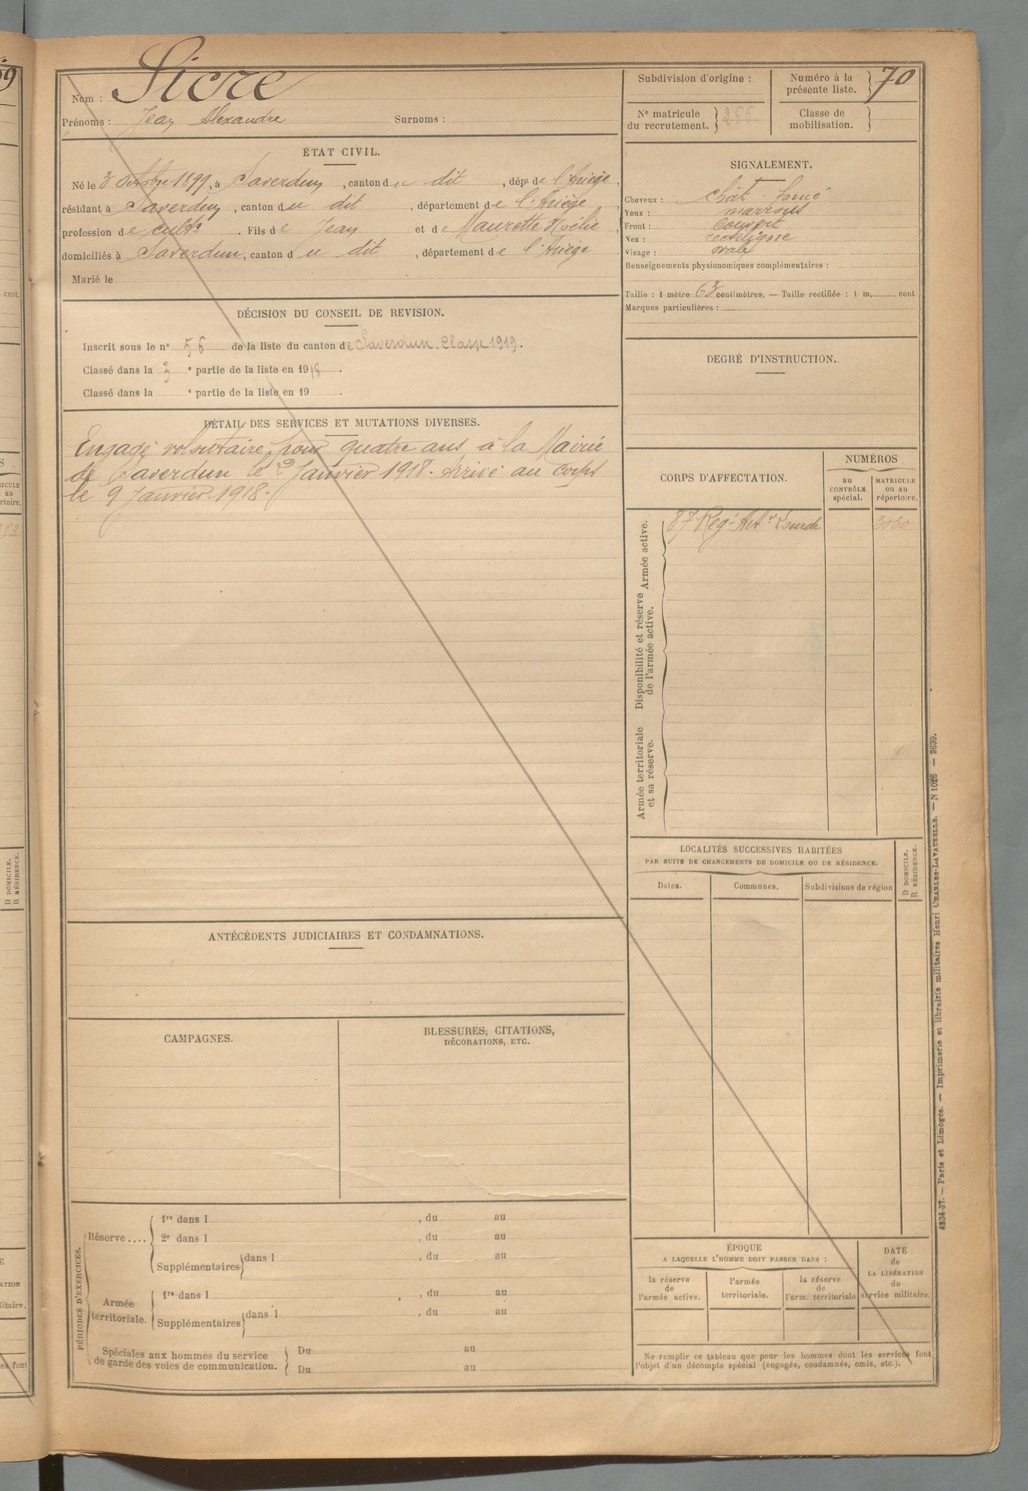 Nom : Sicre
Prénoms : Jean Alexandre Surnoms :
Subdivision d'origine :
Numéro à la présente liste. 70
N° matricule du recrutement.
Classe de mobilisation.
ÉTAT CIVIL.
Né le 3 Octobre 1899, à Saverdun, canton du dit, dépt de l'Ariège,
résidant à Saverdun, canton du dit, département de l'Ariège
profession de cultr. Fils de Jean et de Maurette Noélie
domiciliés à Saverdun, canton du dit, département de l'Ariège
Marié le
SIGNALEMENT.
Cheveux : chât foncé
Yeux : marrons
Front :
Nez : rectiligne
Visage : ovale
Renseignements physionomiques complémentaires :
Taille : 1 mètre 63 centimètres. — Taille rectifiée : 1 m. cent
Marques particulières :
DÉCISION DU CONSEIL DE REVISION.
Inscrit sous le n° 56 de la liste du canton de Saverdun. Classe 1919.
Classé dans la e partie de la liste en 1918.
Classé dans la e partie de la liste en 19 .
DEGRÉ D'INSTRUCTION.
DÉTAIL DES SERVICES ET MUTATIONS DIVERSES.
Engagé volontaire pour quatre ans à la Mairie
de Saverdun le 2 Janvier 1918. Arrivé au corps
le 9 Janvier 1918.
CORPS D'AFFECTATION.
NUMÉROS
AU CONTRÔLE spécial.
MATRICULE ou au répertoire.
Armée active.
87 Rég. Art ie Lourde
Disponibilité et réserve de l'armée active.
Armée territoriale et sa réserve.
LOCALITÉS SUCCESSIVES HABITÉES
PAR SUITE DE CHANGEMENTS DE DOMICILE OU DE RÉSIDENCE.
D DOMICILE.
R RÉSIDENCE.
Dates.
Communes.
Subdivisions de région
ANTÉCÉDENTS JUDICIAIRES ET CONDAMNATIONS.
CAMPAGNES.
BLESSURES, CITATIONS,
DÉCORATIONS, ETC.
PÉRIODES D'EXERCICES.
Réserve .... 1re dans l , du au
2e dans l , du au
Supplémentaires dans l , du au
Armée territoriale. 1re dans l , du au
Supplémentaires dans l , du au
Spéciales aux hommes du service
de garde des voies de communication.
Du au
Du au
ÉPOQUE
A LAQUELLE L'HOMME DOIT PASSER DANS :
la réserve de l'armée active.
l'armée territoriale.
la réserve de l'arm. territoriale
DATE de LA LIBÉRATION du service militaire.
Ne remplir ce tableau que pour les hommes dont les services font
l'objet d'un décompte spécial (engagés, condamnés, omis, etc.).
4234-37. — Paris et Limoges. — Imprimerie et librairie militaires Henri CHARLES-LAVAUZELLE. — N 1026 — 2639.